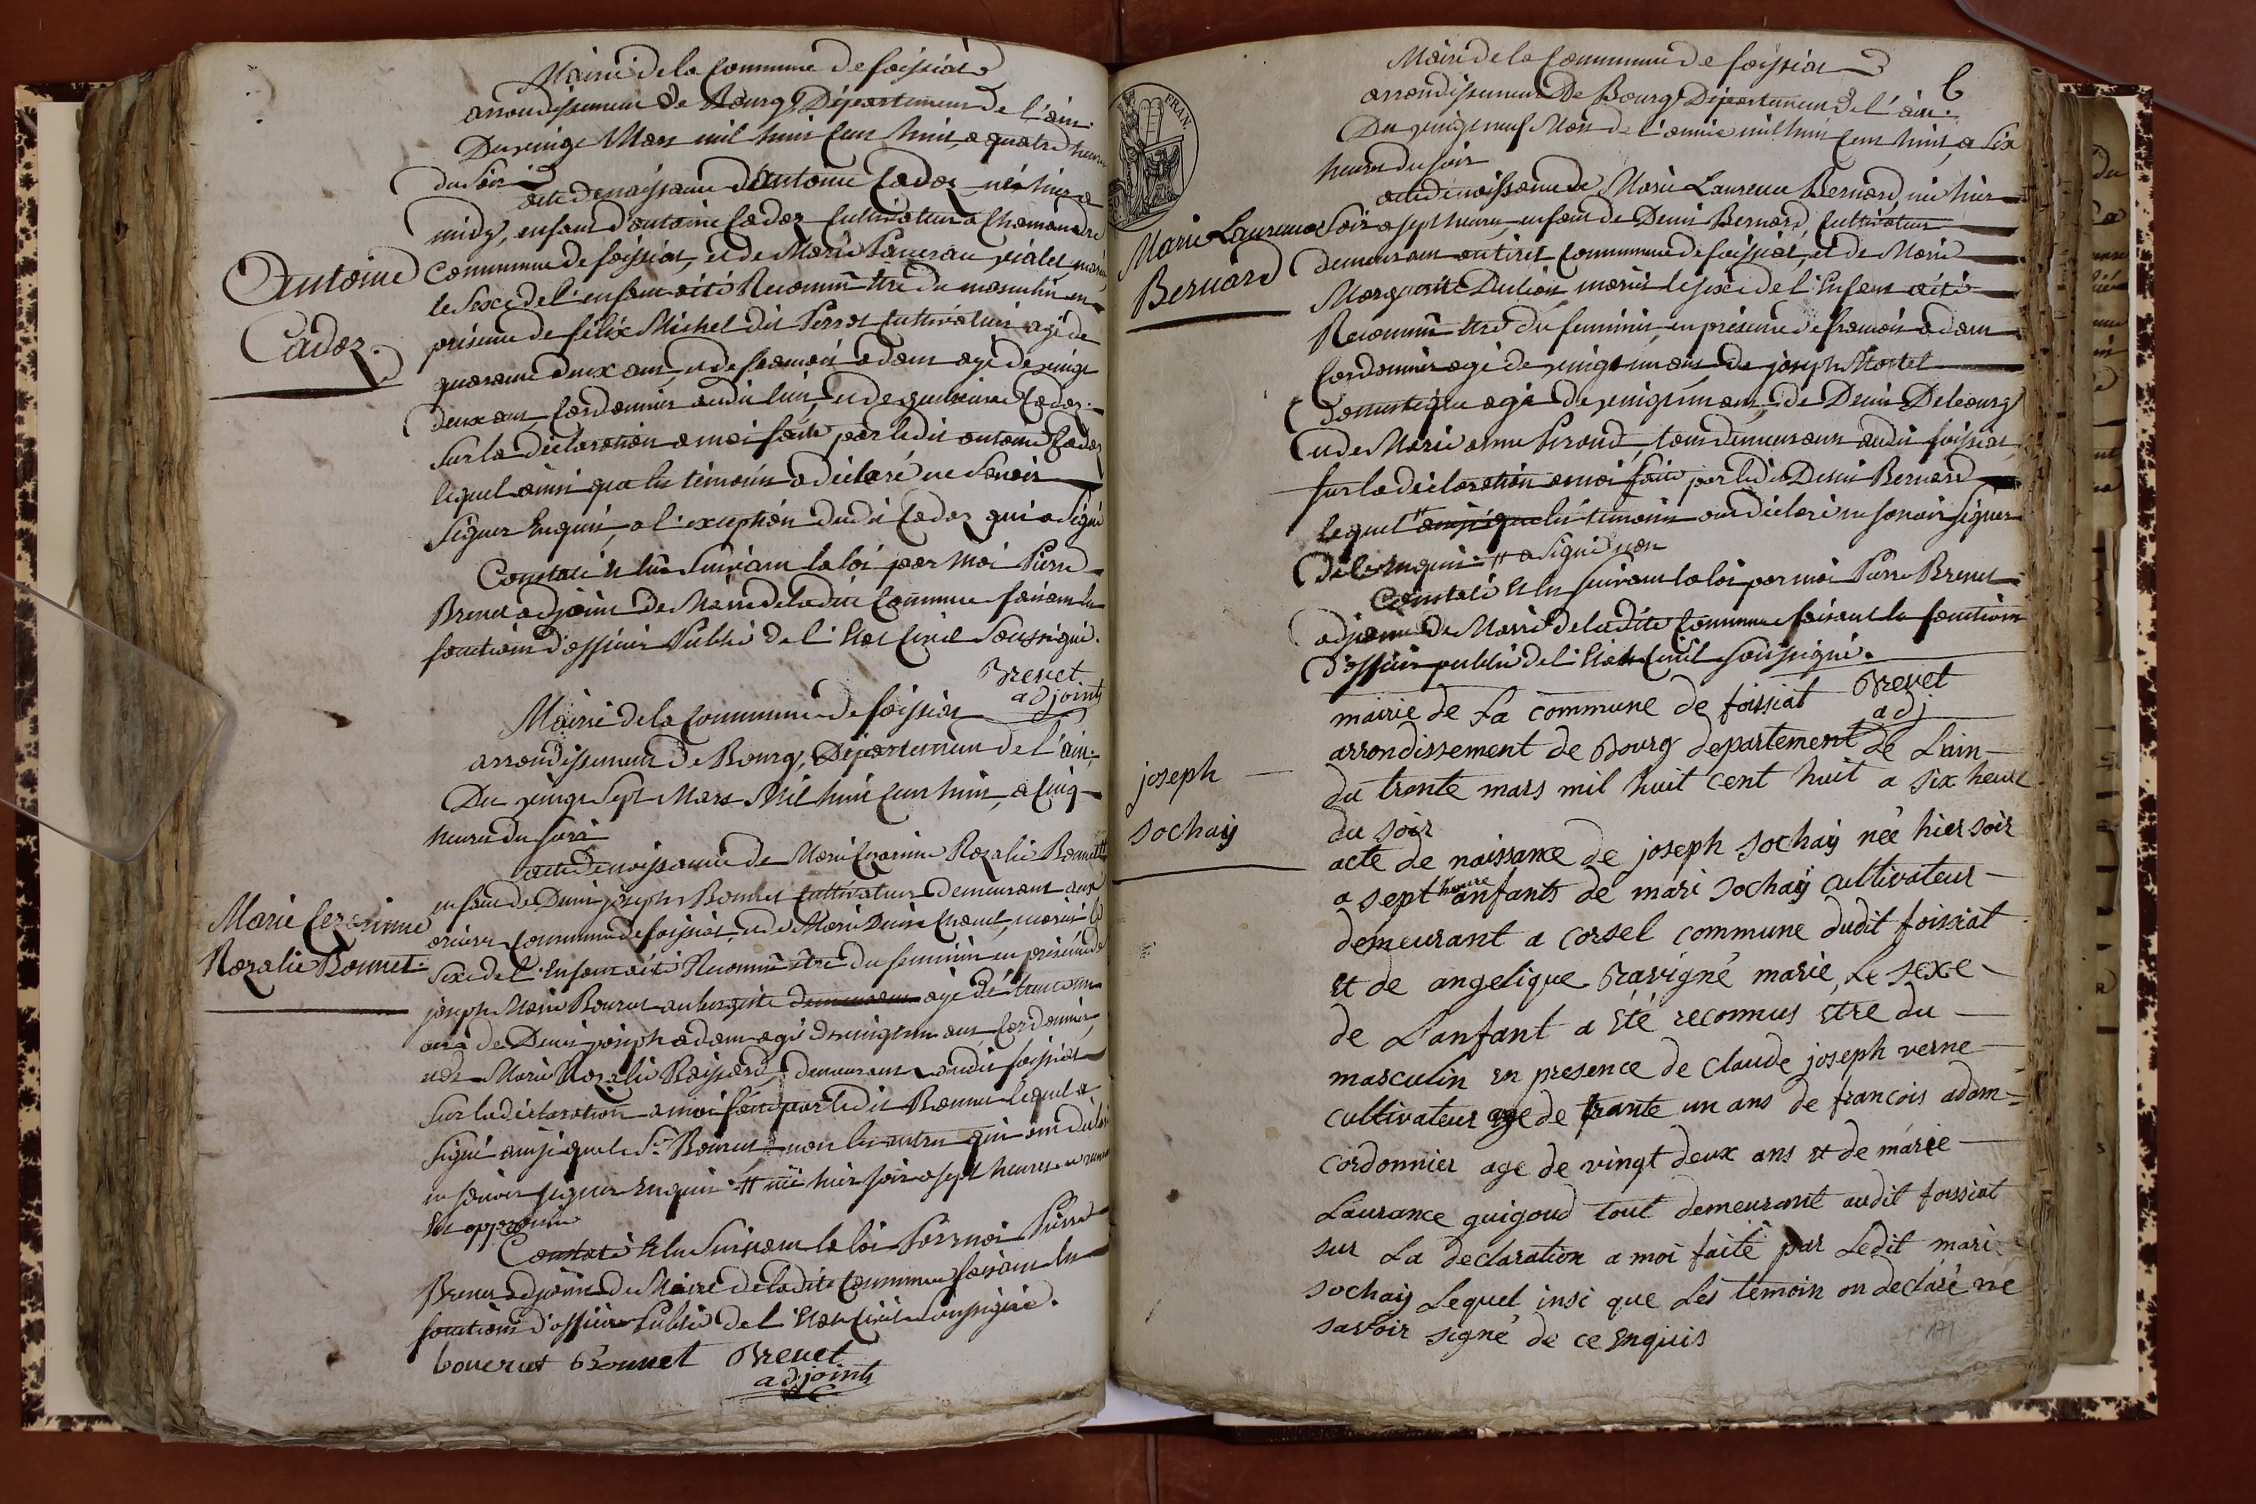 Mairie de la Commune de foissiat
arrondissement de Bourg Département de l'ain.
Du vingt Mars mil huit Cent huit, a quatre heures
du Soir
acte de naissance d'antoine Cadoz né hier a
midy, enfant d'antoine Cadoz Cultivateur a
Commune de foissiat, et de Marie
Antoine
Cadoz.
le Sexe de l'enfant a été Reconnu être du masculin en
présence de félix Michel dit Perret Cultivateur agé de
quarante deux ans, et de francois adam agé de vingt
deux ans Cordonnier audit lieu, et de Cadoz.
Sur la déclaration a moi faite par ledit antoine Cadoz
lequel ainsi que les témoins a déclaré ne Savoir
Signer Enquis, a l'exception dudit Cadoz qui a Signé
Constaté et lu Suivant la loi par Moi Pierre
Brevet adjoint de Maire de ladite Commune faisant les
fonctions d'officier Public de l'Etat Civil Soussigné.
Brevet
adjoint
Mairie de la Commune de foissiat
arrondissement de Bourg, Département de l'ain.
Du vingt Sept Mars Mil huit Cent huit, a Cinq
heures du Soir
acte de naissance de Marie Cezarinne Rozalie Bonnet
Marie Cezarinne
Rozalie Bonnet
enfant de Denis joseph Bonnet Cultivateur demeurant aux
Commune de foissiat, et de Marie Denise mariés le
Sexe de l'Enfant a été Reconnu être du feminin en présence de
joseph Marie Bouvrut aubergiste demeurant agé de trente
de Denis joseph adam agé de vingt un ans Cordonnier,
et de Marie Rozalie demeurant audit foissiat
Sur la déclaration a moi faite par ledit Bonnet lequel a
Signé ainsi que le Sr. Bouvrut non les autres qui ont déclaré
ne Savoir Signer Enquis # née hier soir a sept heures
est approuvé
Constaté et lu Suivant la loi Par moi Pierre
Brevet adjoint de Maire de ladite Commune faisant les
fonctions d'officier Public de l'Etat Civil Soussigné.
bouvrut Bonnet Brevet
adjoint
6
Mairie de la Commune de foissiat
arrondissement De Bourg Département de l'ain.
Du vingt neuf Mars de l'année mil huit Cent huit, a Six
heures du Soir
acte de naissance de Marie Laurence Bernard, née hier
Marie Laurence
Bernard
Soir a sept heures, enfant de Denis Bernard, Cultivateur
demeurant au tiret Commune de foissiat, et de Marie
Marguerite mariés le sexe de l'Enfant a été
Reconnu être du feminin, en présence de francois adam
Cordonnier agé de vingt un ans de joseph Mortel
Domestique agé de vingt un ans, de Denis Delcourg
et de Marie anne Peroud, tous demeurans audit foissiat,
Sur la déclaration a moi faite par ledit Denis Bernard
lequel # ainsi que les témoins ont déclaré ne savoir signer
de ce Enquis # a Signé non
Constaté et lu Suivant la loi par moi Pierre Brevet
adjoint de Maire de ladite Commune faisant les fonctions
d'officier public de l'Etat Civil soussigné.
Brevet
adj
mairie de La commune de foissiat
arrondissement de Bourg departement de L'ain
du trente mars mil huit cent huit a six heure
du soir
joseph
sochay
acte de naissance de joseph sochay née hier soir
a sept heure anfants de mari sochay cultivateur
demeurant a corsel commune dudit foissiat
et de angelique Pravigné marie, Le sexe
de L'anfant a été reconnus etre du
masculin en presence de claude joseph verne
cultivateur age de trante un ans de francois adam
cordonnier age de vingt deux ans et de marie
Laurance guigoud tout demeurant audit foissiat
sur La declaration a moi faite par Ledit mari
sochay Lequel insi que Les temoin on declaré ne
savoir signé de ce enquis
171